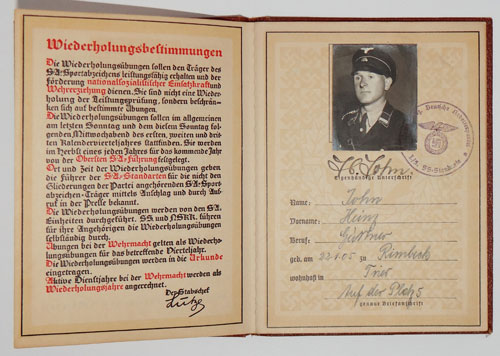 Wiederholungsbestimmungen
Die Wiederholungsübungen sollen den Träger des
SA-Sportabzeichens leistungsfähig erhalten und der
Förderung nationalsozialistischer Einsatzkraft und
Wehrerziehung dienen. Sie sind nicht eine Wieder-
holung der Leistungsprüfung, sondern beschrän-
ken sich auf bestimmte Übungen.
Die Wiederholungsübungen sollen im allgemeinen
am letzten Sonntag und dem diesem Sonntag folgen-
den Mittwochabend des ersten, zweiten und dritten
Kalendervierteljahres stattfinden. Sie werden
im Herbst eines jeden Jahres für das kommende Jahr
von der Obersten SA-Führung festgelegt.
Ort und Zeit der Wiederholungsübungen geben
die Führer der SA-Standarten für die nicht den
Gliederungen der Partei angehörenden SA-Sport-
abzeichen-Träger mittels Anschlag und durch Auf-
ruf in der Presse bekannt.
Die Wiederholungsübungen werden von den SA-
Einheiten durchgeführt. SS und NSKK. führen
für ihre Angehörigen die Wiederholungsübungen
selbständig durch.
Übungen bei der Wehrmacht gelten als Wiederho-
lungsübungen für das betreffende Vierteljahr.
Die Wiederholungsübungen werden in die Urkunde
eingetragen.
Aktive Dienstjahre bei der Wehrmacht werden als
Wiederholungsjahre angerechnet.
Der Stabschef
Lutze
John
Eigenhändige Unterschrift
Name: John
Vorname: Heinz
Beruf:
geb. am 22.1.05 zu
wohnhaft in Trier
Auf der
genaue Briefanschrift